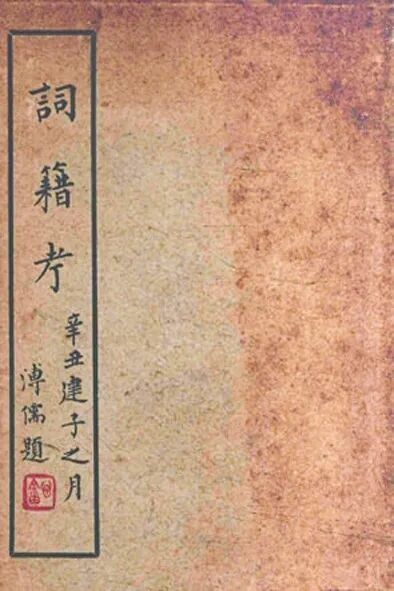 詞籍考
辛丑建子之月
溥儒題